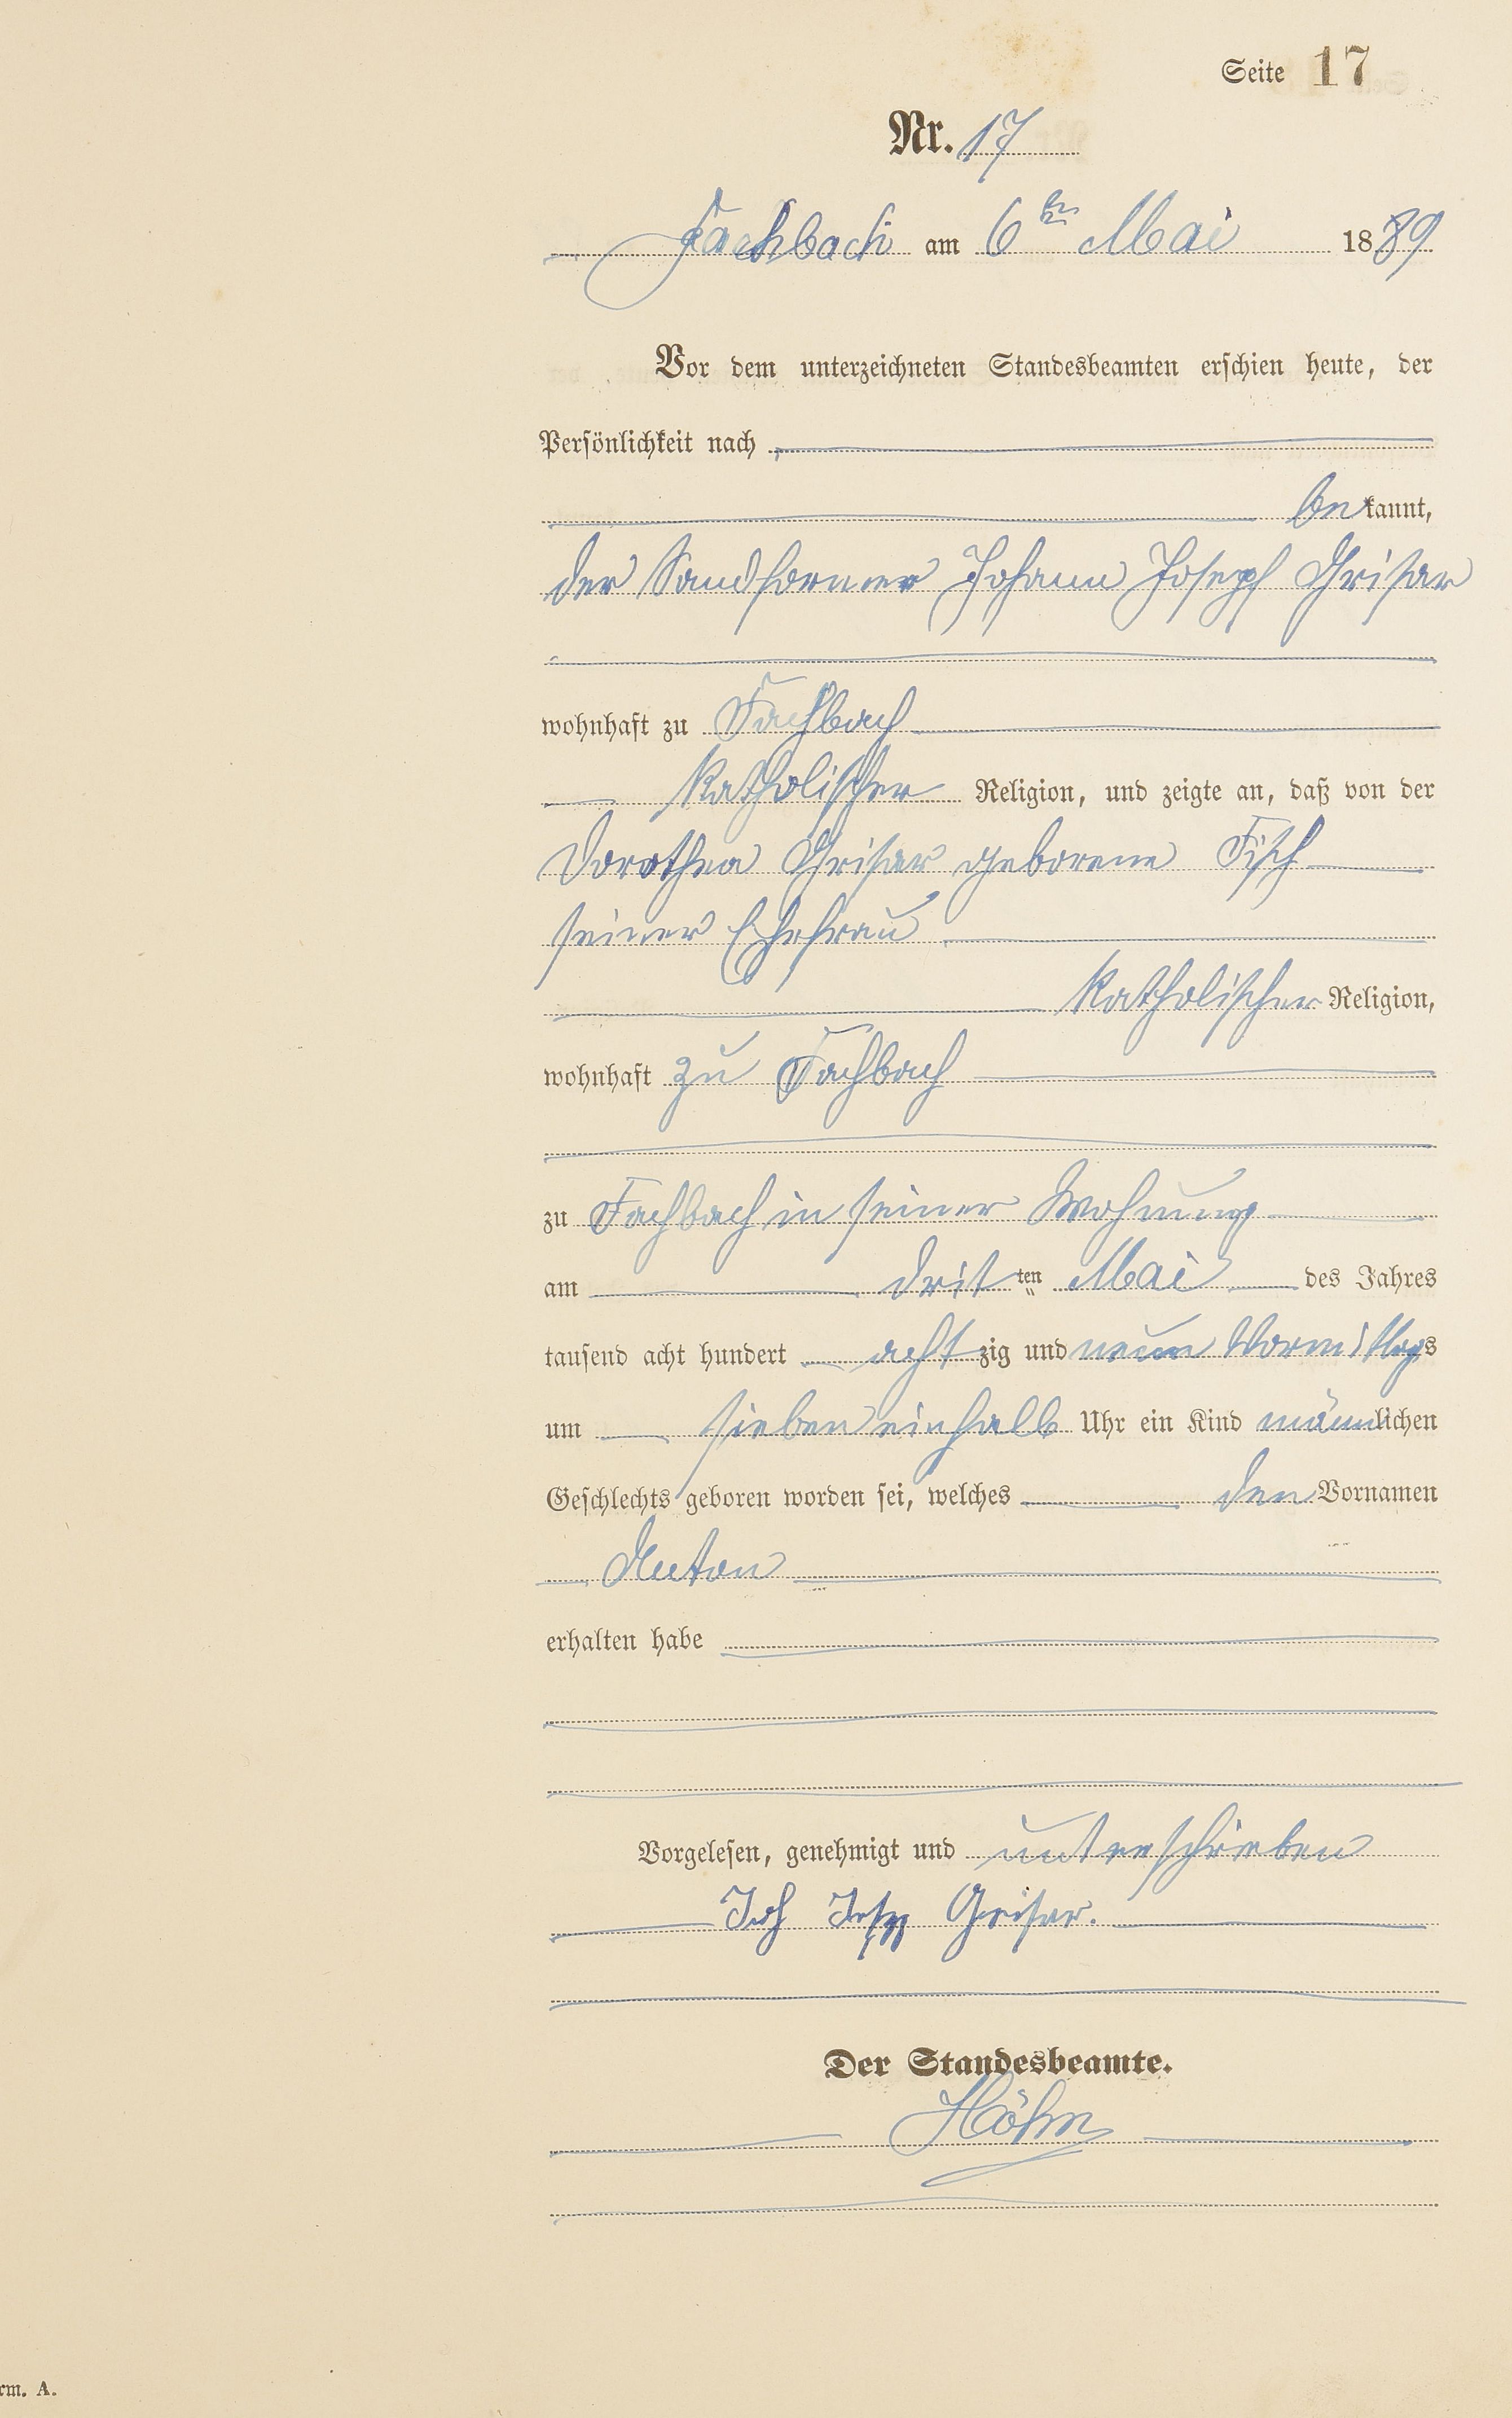 Seite 17
Nr. 17
Fachbach am 6ten Mai 1889
Vor dem unterzeichneten Standesbeamten erschien heute, der
Persönlichkeit nach
bekannt,
der Sandformer Johann Joseph Grisar
wohnhaft zu Fachbach
katholischer Religion, und zeigte an, daß von der
Dorothea Grisar geborene Fisch
seiner Ehefrau
katholischer Religion,
wohnhaft zu Fachbach
zu Fachbach in seiner Wohnung
am dritten Mai des Jahres
tausend acht hundert achtzig und neun Vormittags
um sieben einhalb Uhr ein Kind männlichen
Geschlechts geboren worden sei, welches den Vornamen
Anton
erhalten habe
Vorgelesen, genehmigt und unterschrieben
Joh Josep Grisar.
Der Standesbeamte.
Höhn
rm. A.